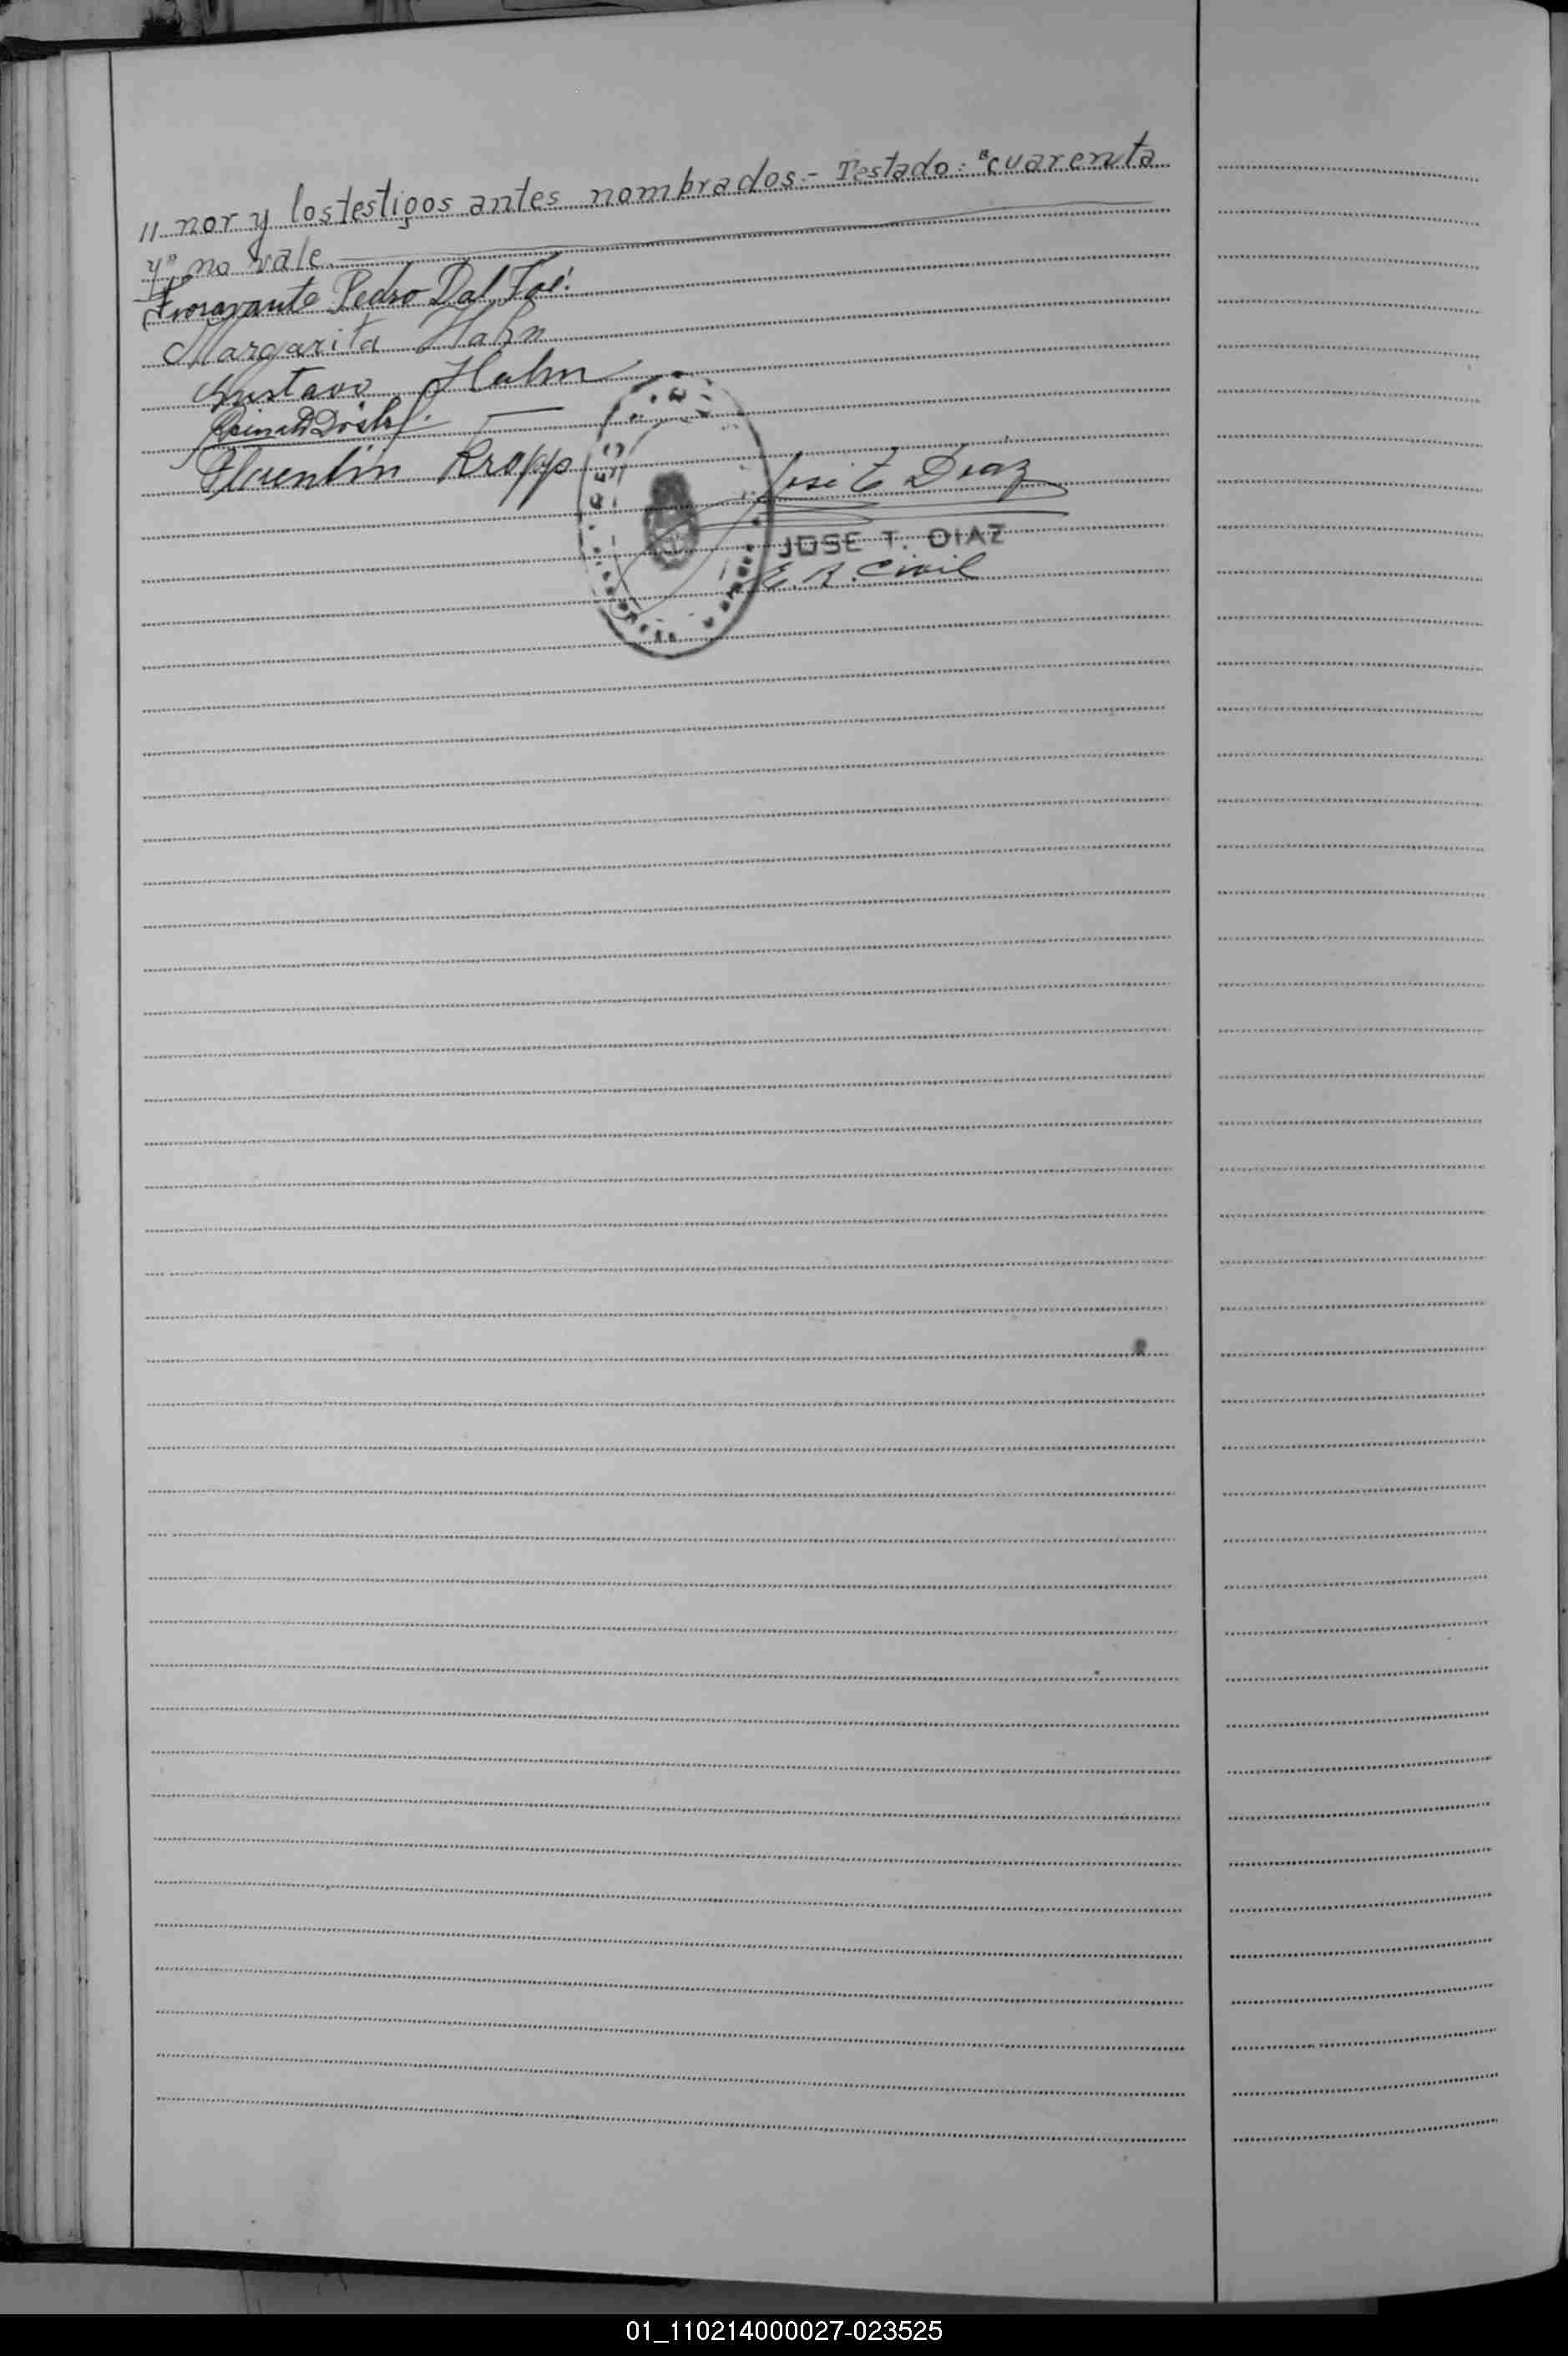 " nor y los testigos antes nombrados.- Testado: "cuarenta
y" no vale.
Fioravante Pedro Dal Foé
Margarita Hahn
Gustavo Hahn
Florentin Kropp
José T Diaz
JOSE T. DIAZ
E. R. Civil
01_110214000027-023525